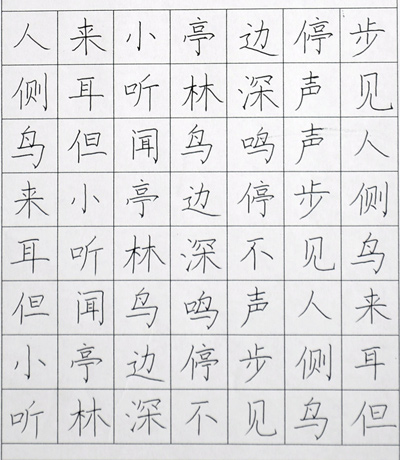 人来小亭边停步
侧耳听林深声见
鸟但闻鸟鸣声人
来小亭边停步侧
耳听林深不见鸟
但闻鸟鸣声人来
小亭边停步侧耳
听林深不见鸟但